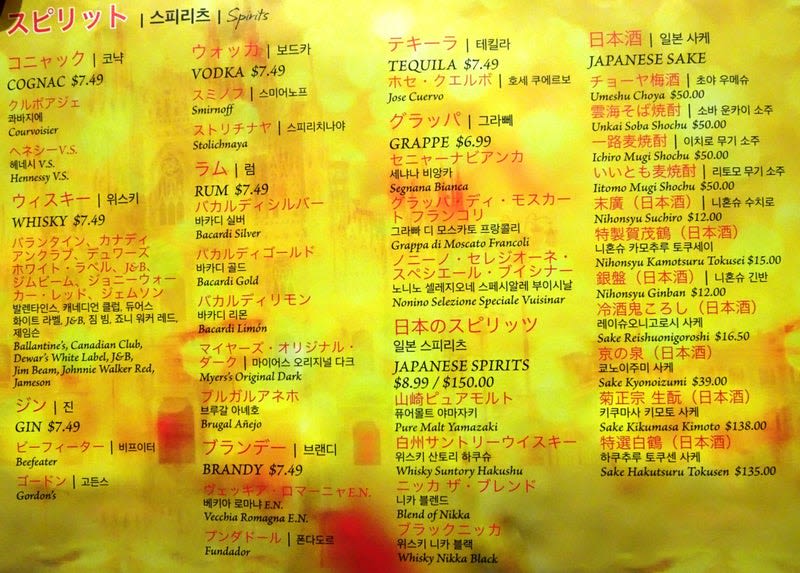 スピリット | 스피리츠 | Spirits
コニャック | 코냑
COGNAC $7.49
クルボアジェ
콰바지에
Courvoisier
ヘネシーV.S.
헤네시 V.S.
Hennessy V.S.
ウィスキー | 위스키
WHISKY $7.49
バランタイン、カナディ
アンクラブ、デュワーズ
ホワイト・ラベル、J&B、
ジムビーム、ジョニーウォー
カー・レッド、ジェムソン
발렌타인스, 캐네디언 클럽, 듀어스
화이트 라벨, J&B, 짐 빔, 죠니 워커 레드,
제임슨
Ballantine's, Canadian Club,
Dewar's White Label, J&B,
Jim Beam, Johnnie Walker Red,
Jameson
ジン | 진
GIN $7.49
ビーフィーター | 비프이터
Beefeater
ゴードン | 고든스
Gordon's
ウォッカ | 보드카
VODKA $7.49
スミノフ | 스미어노프
Smirnoff
ストリチナヤ | 스피리치나야
Stolichnaya
ラム | 럼
RUM $7.49
バカルディシルバー
바카디 실버
Bacardi Silver
バカルディゴールド
바카디 골드
Bacardi Gold
バカルディリモン
바카디 리몬
Bacardi Limón
マイヤーズ・オリジナル・
ダーク | 마이어스 오리지널 다크
Myers's Original Dark
ブルガルアネホ
브루갈 아녜호
Brugal Añejo
ブランデー | 브랜디
BRANDY $7.49
ヴェッキア・ロマーニャE.N.
베키아 로마냐 E.N.
Vecchia Romagna E.N.
フンダドール | 폰다도르
Fundador
テキーラ | 테킬라
TEQUILA $7.49
ホセ・クエルボ | 호세 쿠에르보
Jose Cuervo
グラッパ | 그라뻬
GRAPPE $6.99
セニャーナビアンカ
세냐나 비앙카
Segnana Bianca
グラッパ・ディ・モスカー
ト フランコリ
그라빠 디 모스카토 프랑콜리
Grappa di Moscato Francoli
ノニーノ・セレジオーネ・
スペシエール・ブイシナー
노니노 셀레지오네 스페시알레 부이시날
Nonino Selezione Speciale Vuisinar
日本のスピリッツ
일본 스피리츠
JAPANESE SPIRITS
$8.99 / $150.00
山崎ピュアモルト
퓨어몰트 야마자키
Pure Malt Yamazaki
白州サントリーウイスキー
위스키 산토리 하쿠슈
Whisky Suntory Hakushu
ニッカ ザ・ブレンド
니카 블렌드
Blend of Nikka
ブラックニッカ
위스키 니카 블랙
Whisky Nikka Black
日本酒 | 일본 사케
JAPANESE SAKE
チョーヤ梅酒 | 초야 우메슈
Umeshu Choya $50.00
雲海そば焼酎 | 소바 운카이 소주
Unkai Soba Shochu $50.00
一路麦焼酎 | 이치로 무기 소주
Ichiro Mugi Shochu $50.00
いいとも麦焼酎 | 리토모 무기 소주
Iitomo Mugi Shochu $50.00
末廣（日本酒） | 니혼슈 수치로
Nihonsyu Suchiro $12.00
特製賀茂鶴（日本酒）
니혼슈 카모추루 토쿠세이
Nihonsyu Kamotsuru Tokusei $15.00
銀盤（日本酒） | 니혼슈 긴반
Nihonsyu Ginban $12.00
冷酒鬼ころし（日本酒）
레이슈오니고로시 사케
Sake Reishuonigoroshi $16.50
京の泉（日本酒）
쿄노이주미 사케
Sake Kyonoizumi $39.00
菊正宗 生酛（日本酒）
키쿠마사 키모토 사케
Sake Kikumasa Kimoto $138.00
特選白鶴（日本酒）
하쿠추루 토쿠센 사케
Sake Hakutsuru Tokusen $135.00